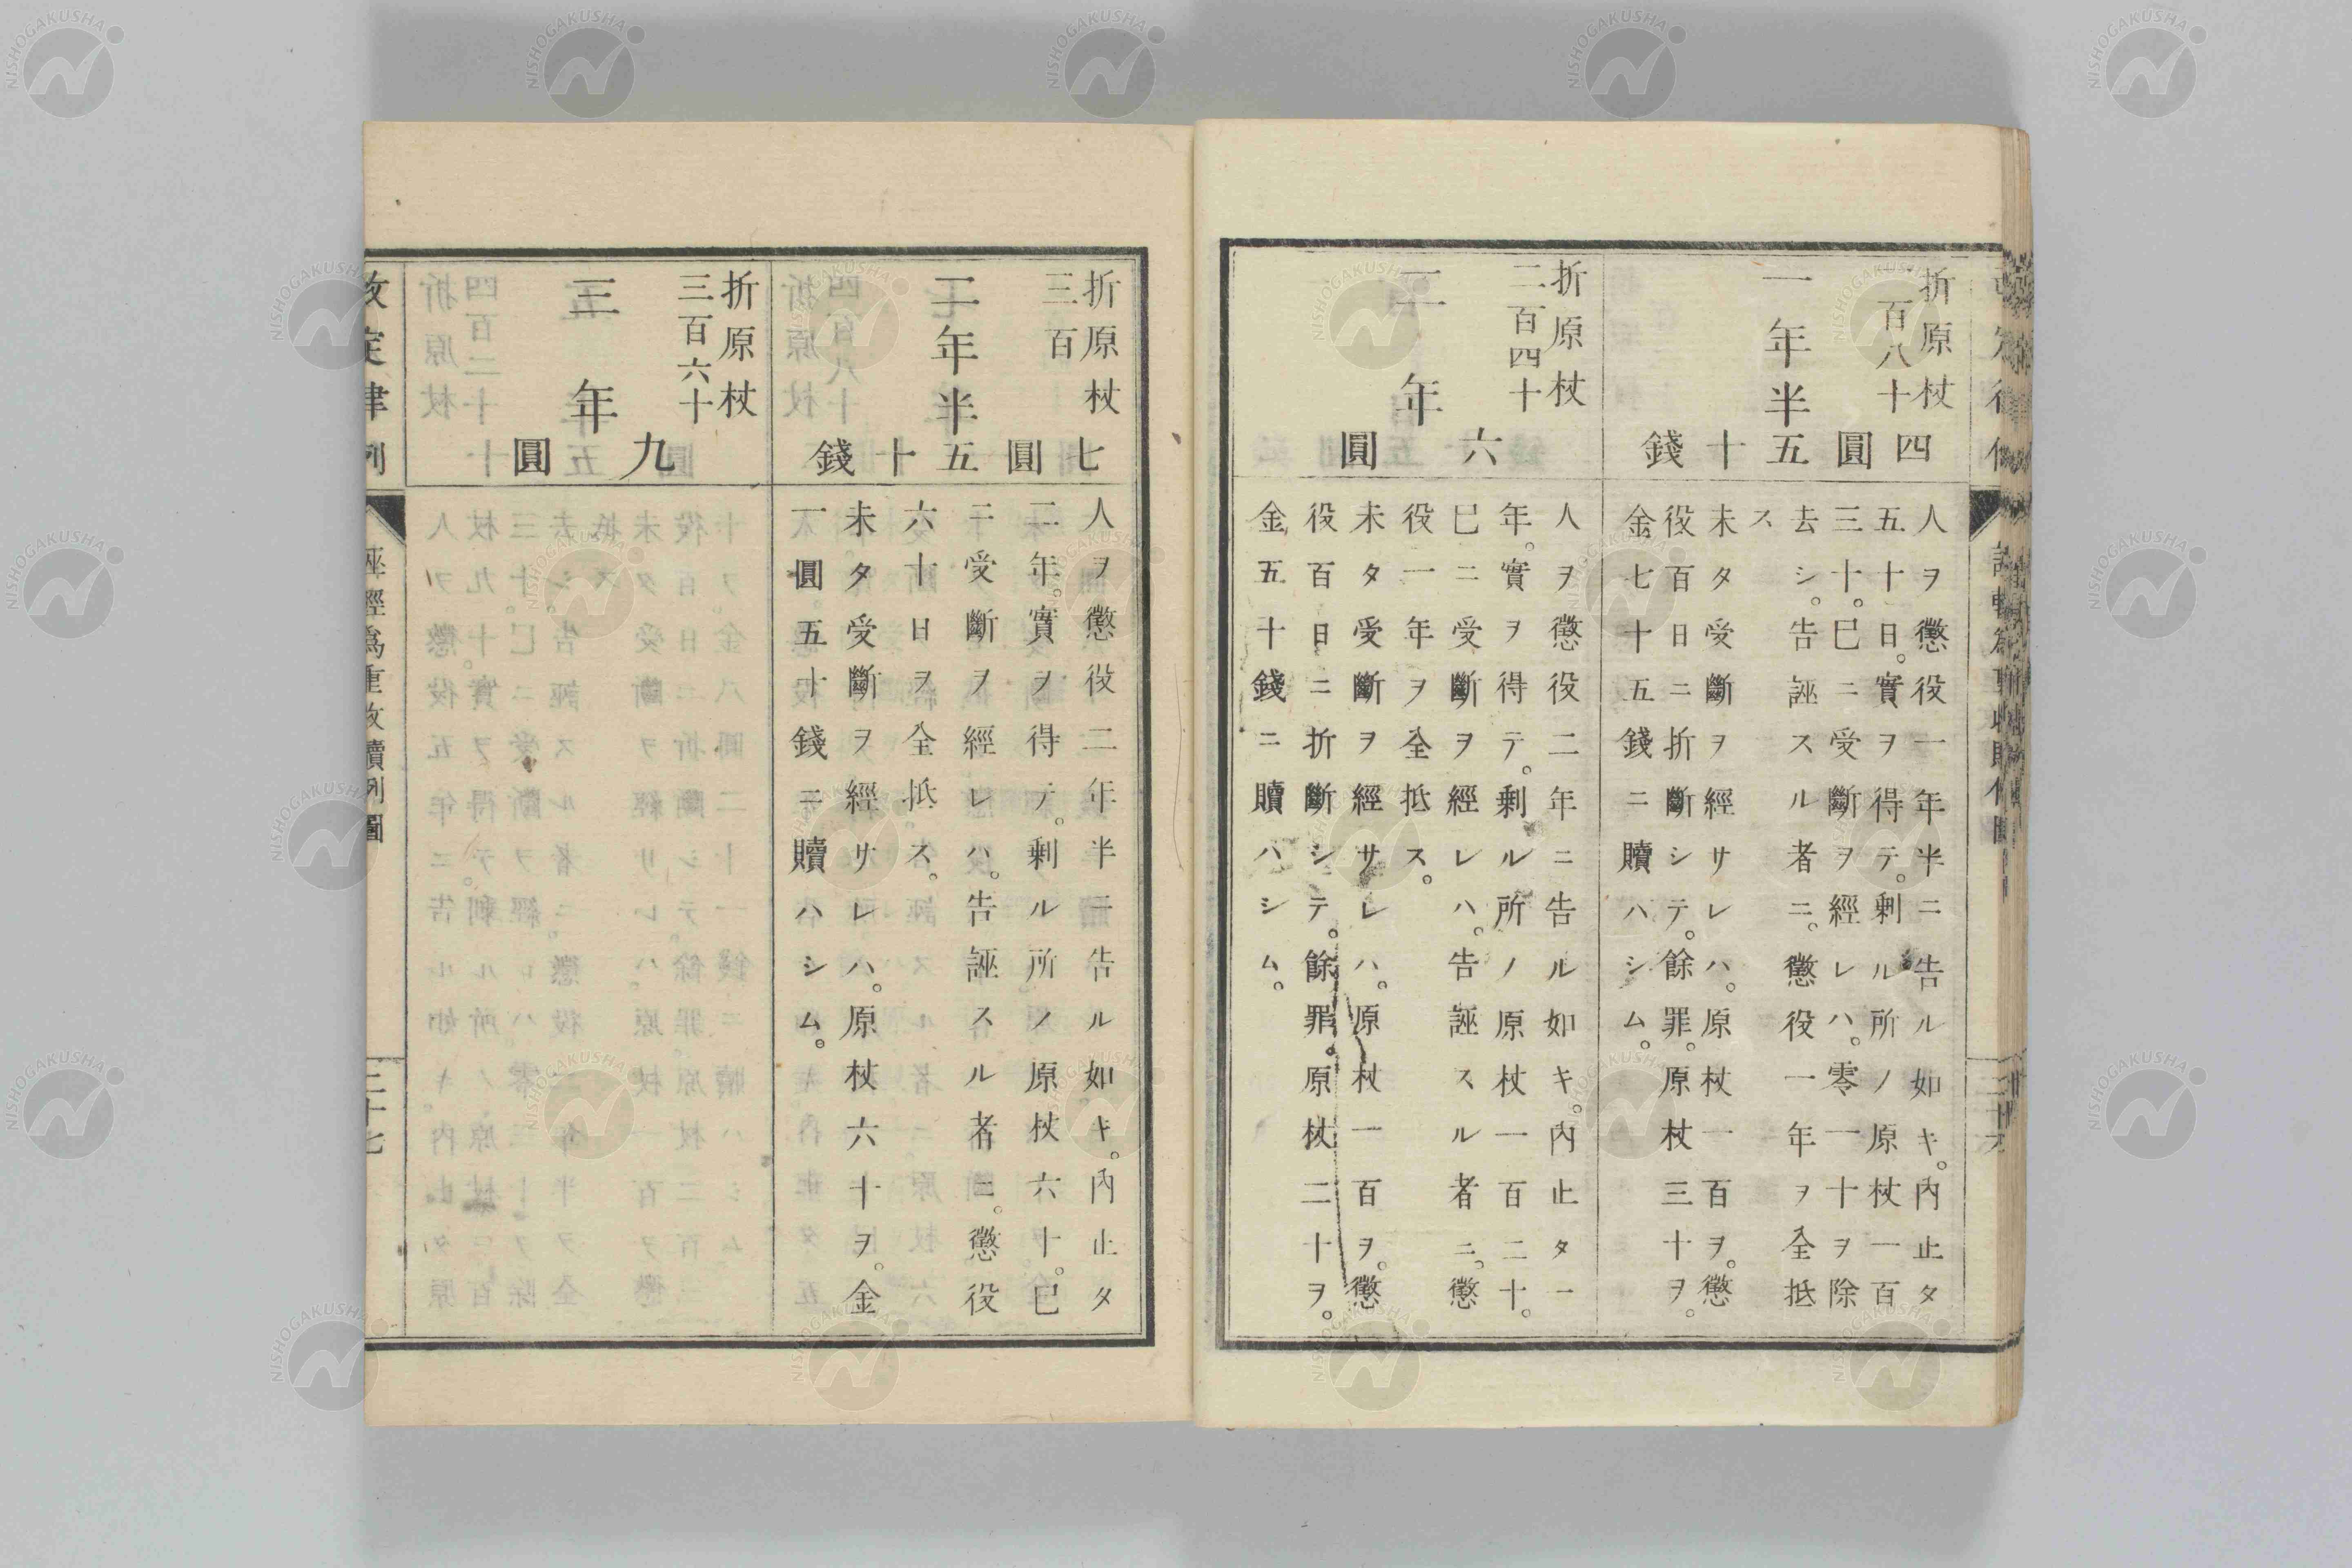 折原杖
百八十
一年半
四圓五十錢
人ヲ懲役一年半ニ告ル如キ。内止タ
五十日。實ヲ得テ。剩ル所ノ原杖一百
三十。已ニ受斷ヲ經レハ。零一十ヲ除
去シ。告誣スル者ニ。懲役一年ヲ全抵
ス
未タ受斷ヲ經サレハ。原杖一百ヲ。懲
役百日ニ折斷シテ。餘罪。原杖三十ヲ。
金七十五錢ニ贖ハシム。
折原杖
二百四十
二年
六圓
人ヲ懲役二年ニ告ル如キ。内止タ一
年。實ヲ得テ。剩ル所ノ原杖一百二十。
已ニ受斷ヲ經レハ。告誣スル者ニ。懲
役一年ヲ全抵ス。
未タ受斷ヲ經サレハ。原杖一百ヲ。懲
役百日ニ折斷シテ。餘罪。原杖二十ヲ。
金五十錢ニ贖ハシム。
折原杖
三百
二年半
七圓五十錢
人ヲ懲役二年半ニ告ル如キ。内止タ
二年。實ヲ得テ。剩ル所ノ原杖六十。已
ニ受斷ヲ經レハ。告誣スル者ニ。懲役
六十日ヲ全抵ス。
未タ受斷ヲ經サレハ。原杖六十ヲ。金
一圓五十錢ニ贖ハシム。
折原杖
三百六十
三年
九圓
改定律例
誣輕爲重收贖例圖
三十七
NISHOGAKUSHA